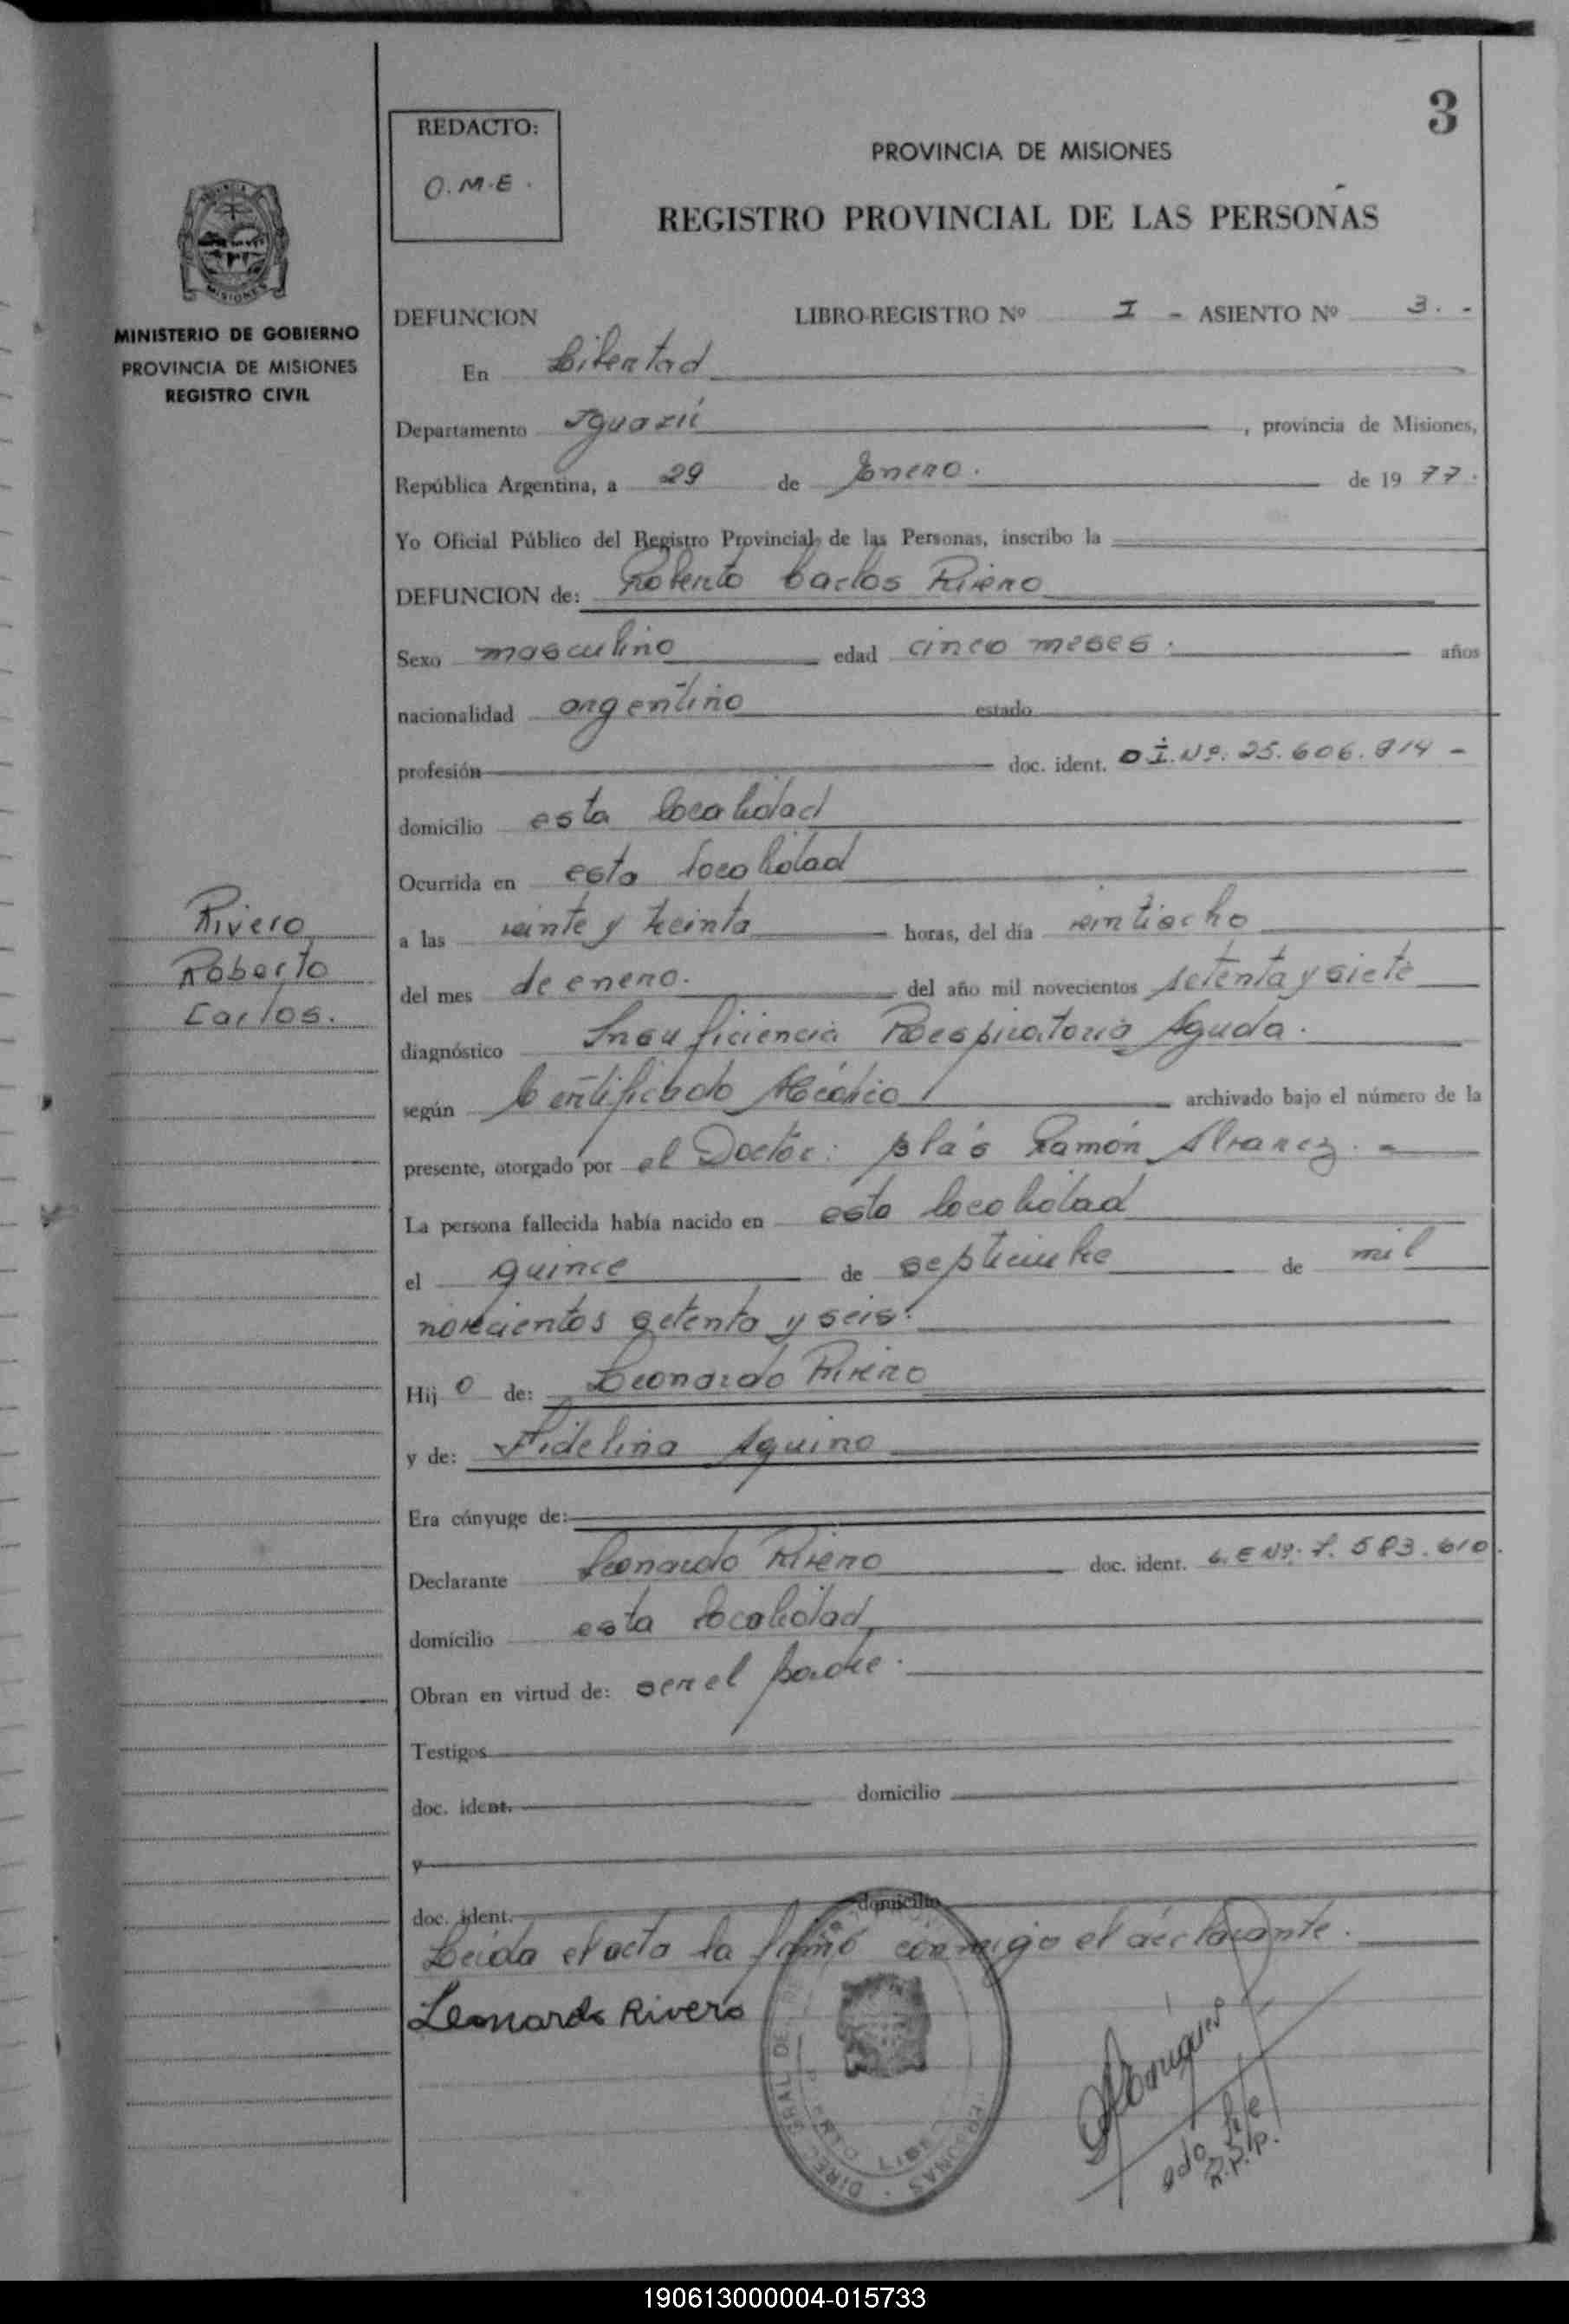 3
REDACTO:
O.M.E.
PROVINCIA DE MISIONES
REGISTRO PROVINCIAL DE LAS PERSONAS
MISIONES
MINISTERIO DE GOBIERNO
PROVINCIA DE MISIONES
REGISTRO CIVIL
DEFUNCION LIBRO-REGISTRO Nº I - ASIENTO Nº 3. -
En Libertad
Departamento Iguazú, provincia de Misiones,
República Argentina, a 29 de Enero. de 19 77.
Yo Oficial Público del Registro Provincial de las Personas, inscribo la
DEFUNCION de: Roberto Carlos Rivero
Sexo masculino edad cinco meses. años
nacionalidad argentino estado
profesión doc. ident. D.I. Nº. 25.606.914 -
domicilio esta localidad
Ocurrida en esta localidad
Rivero
Roberto
Carlos.
a las veinte y treinta horas, del día veintiocho
del mes de enero. del año mil novecientos setenta y siete
diagnóstico Insuficiencia Respiratoria Aguda.
según Certificado Médico archivado bajo el número de la
presente, otorgado por el Doctor: Blás Ramón Alvarez. -
La persona fallecida había nacido en esta localidad
el quince de septiembre de mil
novecientos setenta y seis.
Hij o de: Leonardo Rivero
y de: Fidelina Aquino
Era cónyuge de:
Declarante Leonardo Rivero doc. ident. L.E Nº. 7.583.610.
domicilio esta localidad
Obran en virtud de: ser el padre.
Testigos
doc. ident. domicilio
y
doc. ident. domicilio
Leida el acta la firmó conmigo el declarante.
Leonardo Rivero
DIREC. GRAL DE PERSONAS
R.P.P.
190613000004-015733